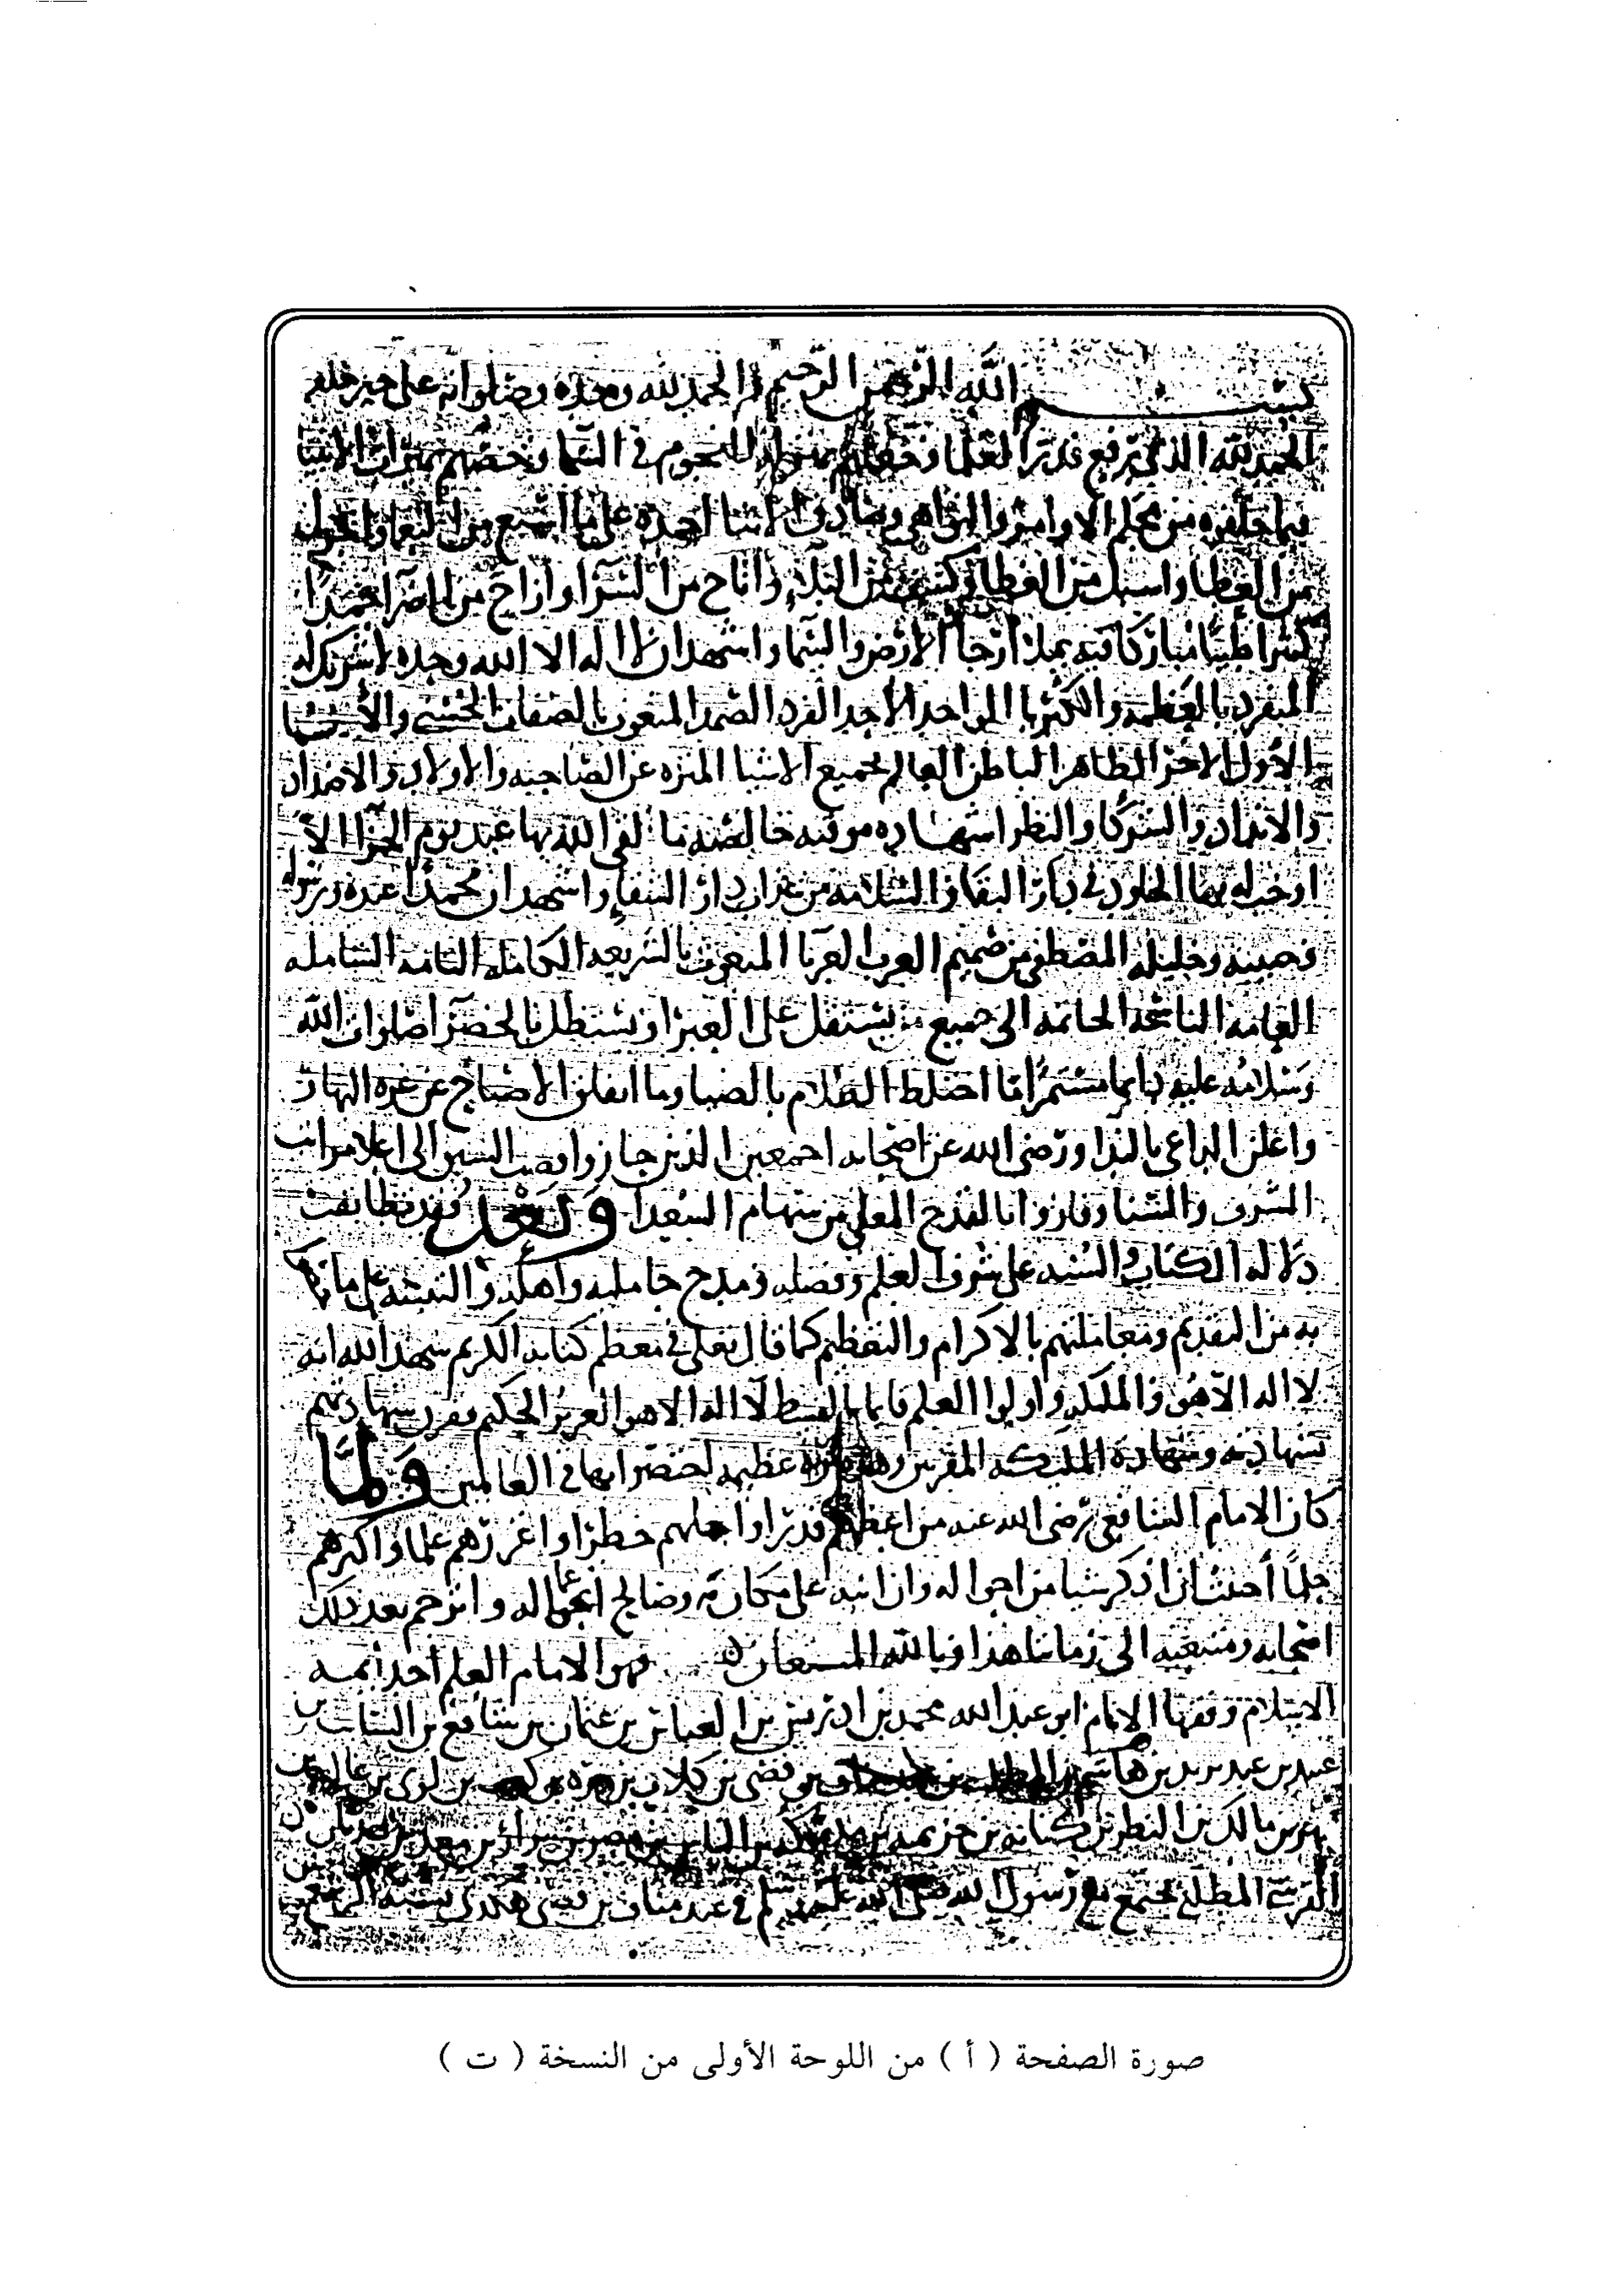 بسم الله الرحمن الرحيم الحمد لله وحده وصلواته على خير خلقه
الحمد لله الذي رفع قدر العلما وجعلهم بمنزلة النجوم في السما وخصهم بميراث الانبيا
من الاوامر والنواهي احمده على ما اسبغ من النعما واجزل
من العطا واسبل من الغطا وكشف من البلاء واتاح من السرا وازاح من الضرا حمدا
كثيرا طيبا مباركا فيه يملا ارجا الارض والسما واشهد ان لا اله الا الله وحده لا شريك له
المنفرد بالعظمه والكبريا الواحد الاحد الفرد الصمد المنعوت بالصفات الحسنى والاسما
الاول الاخر الظاهر الباطن العالم بجميع الاشيا المنزه عن الصاحبه والاولاد والاضداد
والانداد والشركا والنظرا شهاده موقنه خالصه ما لقي الله بها عبد يوم الجزا الا
اوجب له بها الخلود في دار البقا والسلامه من عذاب دار الشقاء واشهد ان محمدا عبده ورسوله
وحبيبه وخليله المصطفى من صميم العرب العربا المبعوث بالشريعه الكامله التامه الشامله
العامه الناسخه الخاتمه الى جميع من يستقل على الغبرا ويستظل بالخضرا صلوات الله
وسلامه عليه دايما مستمرا ما اختلط الظلام بالضيا وما انفلق الاصباح عن غره النهار
واعلن الداعي بالندا ورضى الله عن اصحابه اجمعين الذين حازوا قصب السبق الى اعلا مراتب
الشرف والثنا وفازوا بالقدح المعلى من سهام السعدا وبعد فقد تطابقت
دلاله الكتاب والسنه على شرف العلم وفضله ومدح حامليه واهله والتنبيه على ما
به من التقديم ومعاملتهم بالاكرام والتعظيم كما قال تعلى في معظم كتابه الكريم شهد الله انه
لا اله الا هو والملكه واولوا العلم قايما بالقسط لا اله الا هو العزيز الحكيم فقرن شهادتهم
بشهادته وشهادة الملئكه المقربين وهذه عظيمه اختصوا بها في العالمين ولما
كان الامام الشافعي رضى الله عنه من اعظمهم قدرا واجلهم خطرا واغزرهم علما واكبرهم
حلما أحببت ان اذكر شيا من احواله وان انبه على مكارمه وصالح اعماله واترجم بعد ذلك
اصحابه ومتبعيه الى زماننا هذا وبالله المستعان فهو الامام العلم احد ايمه
الاسلام وفقها الانام ابو عبد الله محمد بن ادريس بن العباس بن عثمان بن شافع بن السايب بن
عبيد بن عبد يزيد بن هاشم بن المطلب بن عبد مناف بن قصى بن كلاب بن مره بن كعب بن لوى بن غالب بن
فهر بن مالك بن النظر بن كنانه بن خزيمه بن مدركه بن الياس بن مضر بن نزار بن معد بن عدنان
القرشي المطلبي يجتمع مع رسول الله صلى الله عليه وسلم في عبد مناف بن قصى
صورة الصفحة ( أ ) من اللوحة الأولى من النسخة ( ت )